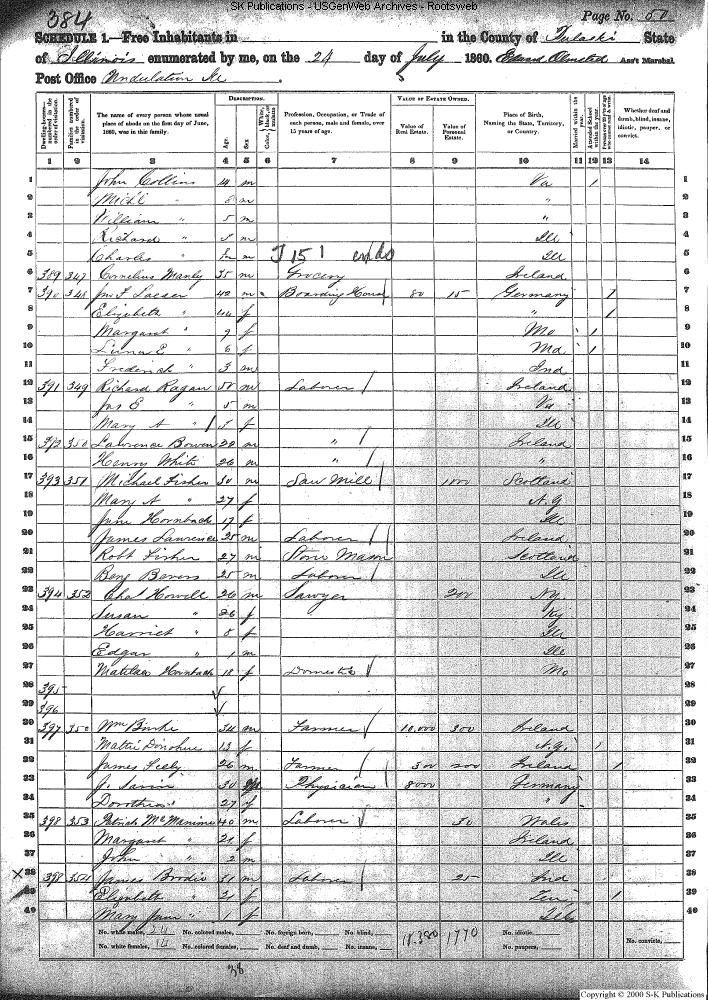 S-K Publications - USGenWeb Archives - Rootsweb
384
Page No. 51
SCHEDULE 1.—Free Inhabitants in in the County of Pulaski State
of Illinois enumerated by me, on the 24 day of July 1860. Edward Olmsted Ass't Marshal.
Post Office Undulation Ill
Dwelling-houses—numbered in the order of visitation.
Families numbered in the order of visitation.
The name of every person whose usual place of abode on the first day of June, 1860, was in this family.
DESCRIPTION.
Age.
Sex.
White, black, or mulatto.
Profession, Occupation, or Trade of each person, male and female, over 15 years of age.
VALUE OF ESTATE OWNED.
Value of Real Estate.
Value of Personal Estate.
Place of Birth, Naming the State, Territory, or Country.
Married within the year.
Attended School within the year.
Whether deaf and dumb, blind, insane, idiotic, pauper, or convict.
1 2 3 4 5 6 7 8 9 10 11 12 13 14
1 John Collins 14 m Va / 1
2 Mich'l " 8 m " 2
3 William " 5 m " 3
4 Richard " m Ill 4
5 Charles " m J 151 ends Ill 5
6 389 347 Cornelius Manly 35 m Grocery Ireland 6
7 390 348 42 m Boarding House 80 15 Germany / 7
8 Elizabeth " 44 f " / 8
9 Margaret " 9 f Mo / 9
10 " 6 f Md / 10
11 Frederick " 3 m Ind 11
12 391 349 Richard Ragan m Laborer / Ireland 12
13 Jas E " 5 m Va 13
14 Mary A " / f Ill 14
15 392 350 Lawrence Bowen 22 m " / Ireland 15
16 Henry White 26 m " / " 16
17 393 351 Michael Fisher 30 m Saw Mill / 100 Scotland 17
18 Mary A " 27 f 18
19 Jane Hornback 17 f Ill 19
20 James Lawrence 25 m Laborer / Ireland 20
21 Robt Fisher 27 m Stone Mason Scotland 21
22 Benj 25 m Laborer / Ill 22
23 394 352 Chas Howell 26 m Sawyer 200 NY 23
24 Susan " 26 f Ky 24
25 Harriet " 8 f Ill 25
26 Edgar " 1 m Ill 26
27 Matilda Hornback 18 f Domestic Mo 27
28 395 28
29 396 29
30 397 350 Wm Burke 34 m Farmer / 10,000 300 Ireland 30
31 Mattie Donohue 13 f / 31
32 James 26 m Farmer / 300 200 Ireland / 32
33 30 Physician 8000 Germany 33
34 27 f " 34
35 398 353 Patrick McManime 40 m Laborer 50 Wales 35
36 Margaret " 21 f Ireland 36
37 John " 2 m Ill 37
38 398 354 James Brodie 31 m Laborer / 25 Ind 38
39 Elizabeth " 21 f Ten / 39
40 Mary Jane " 1 f Ill 40
No. white males, 24 No. colored males, No. foreign born, No. blind, 11,380 1770 No. idiotic,
No. white females, 14 No. colored females, No. deaf and dumb, No. insane, No. paupers, No. convicts,
38
Copyright © 2000 S-K Publications